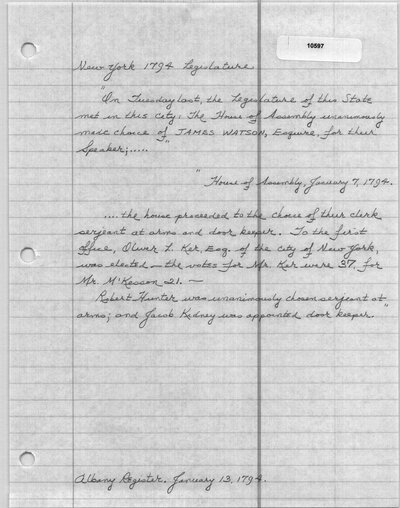 10597
New York 1794 Legislature
"On Tuesday last, the Legislature of this State
met in this city: The House of Assembly unanimously
made choice of JAMES WATSON, Esquire, for their
Speaker;....."
"House of Assembly, January 7, 1794.
....the house proceeded to the choice of their clerk
serjeant at arms and door keeper. To the first
office, Oliver L. Ker, Esq. of the city of New York,
was elected — the votes for Mr. Ker were 37, for
Mr. M'Kesson 21. —
Robert Hunter was unanimously chosen serjeant at
arms; and Jacob Kidney was appointed door keeper."
Albany Register. January 13, 1794.